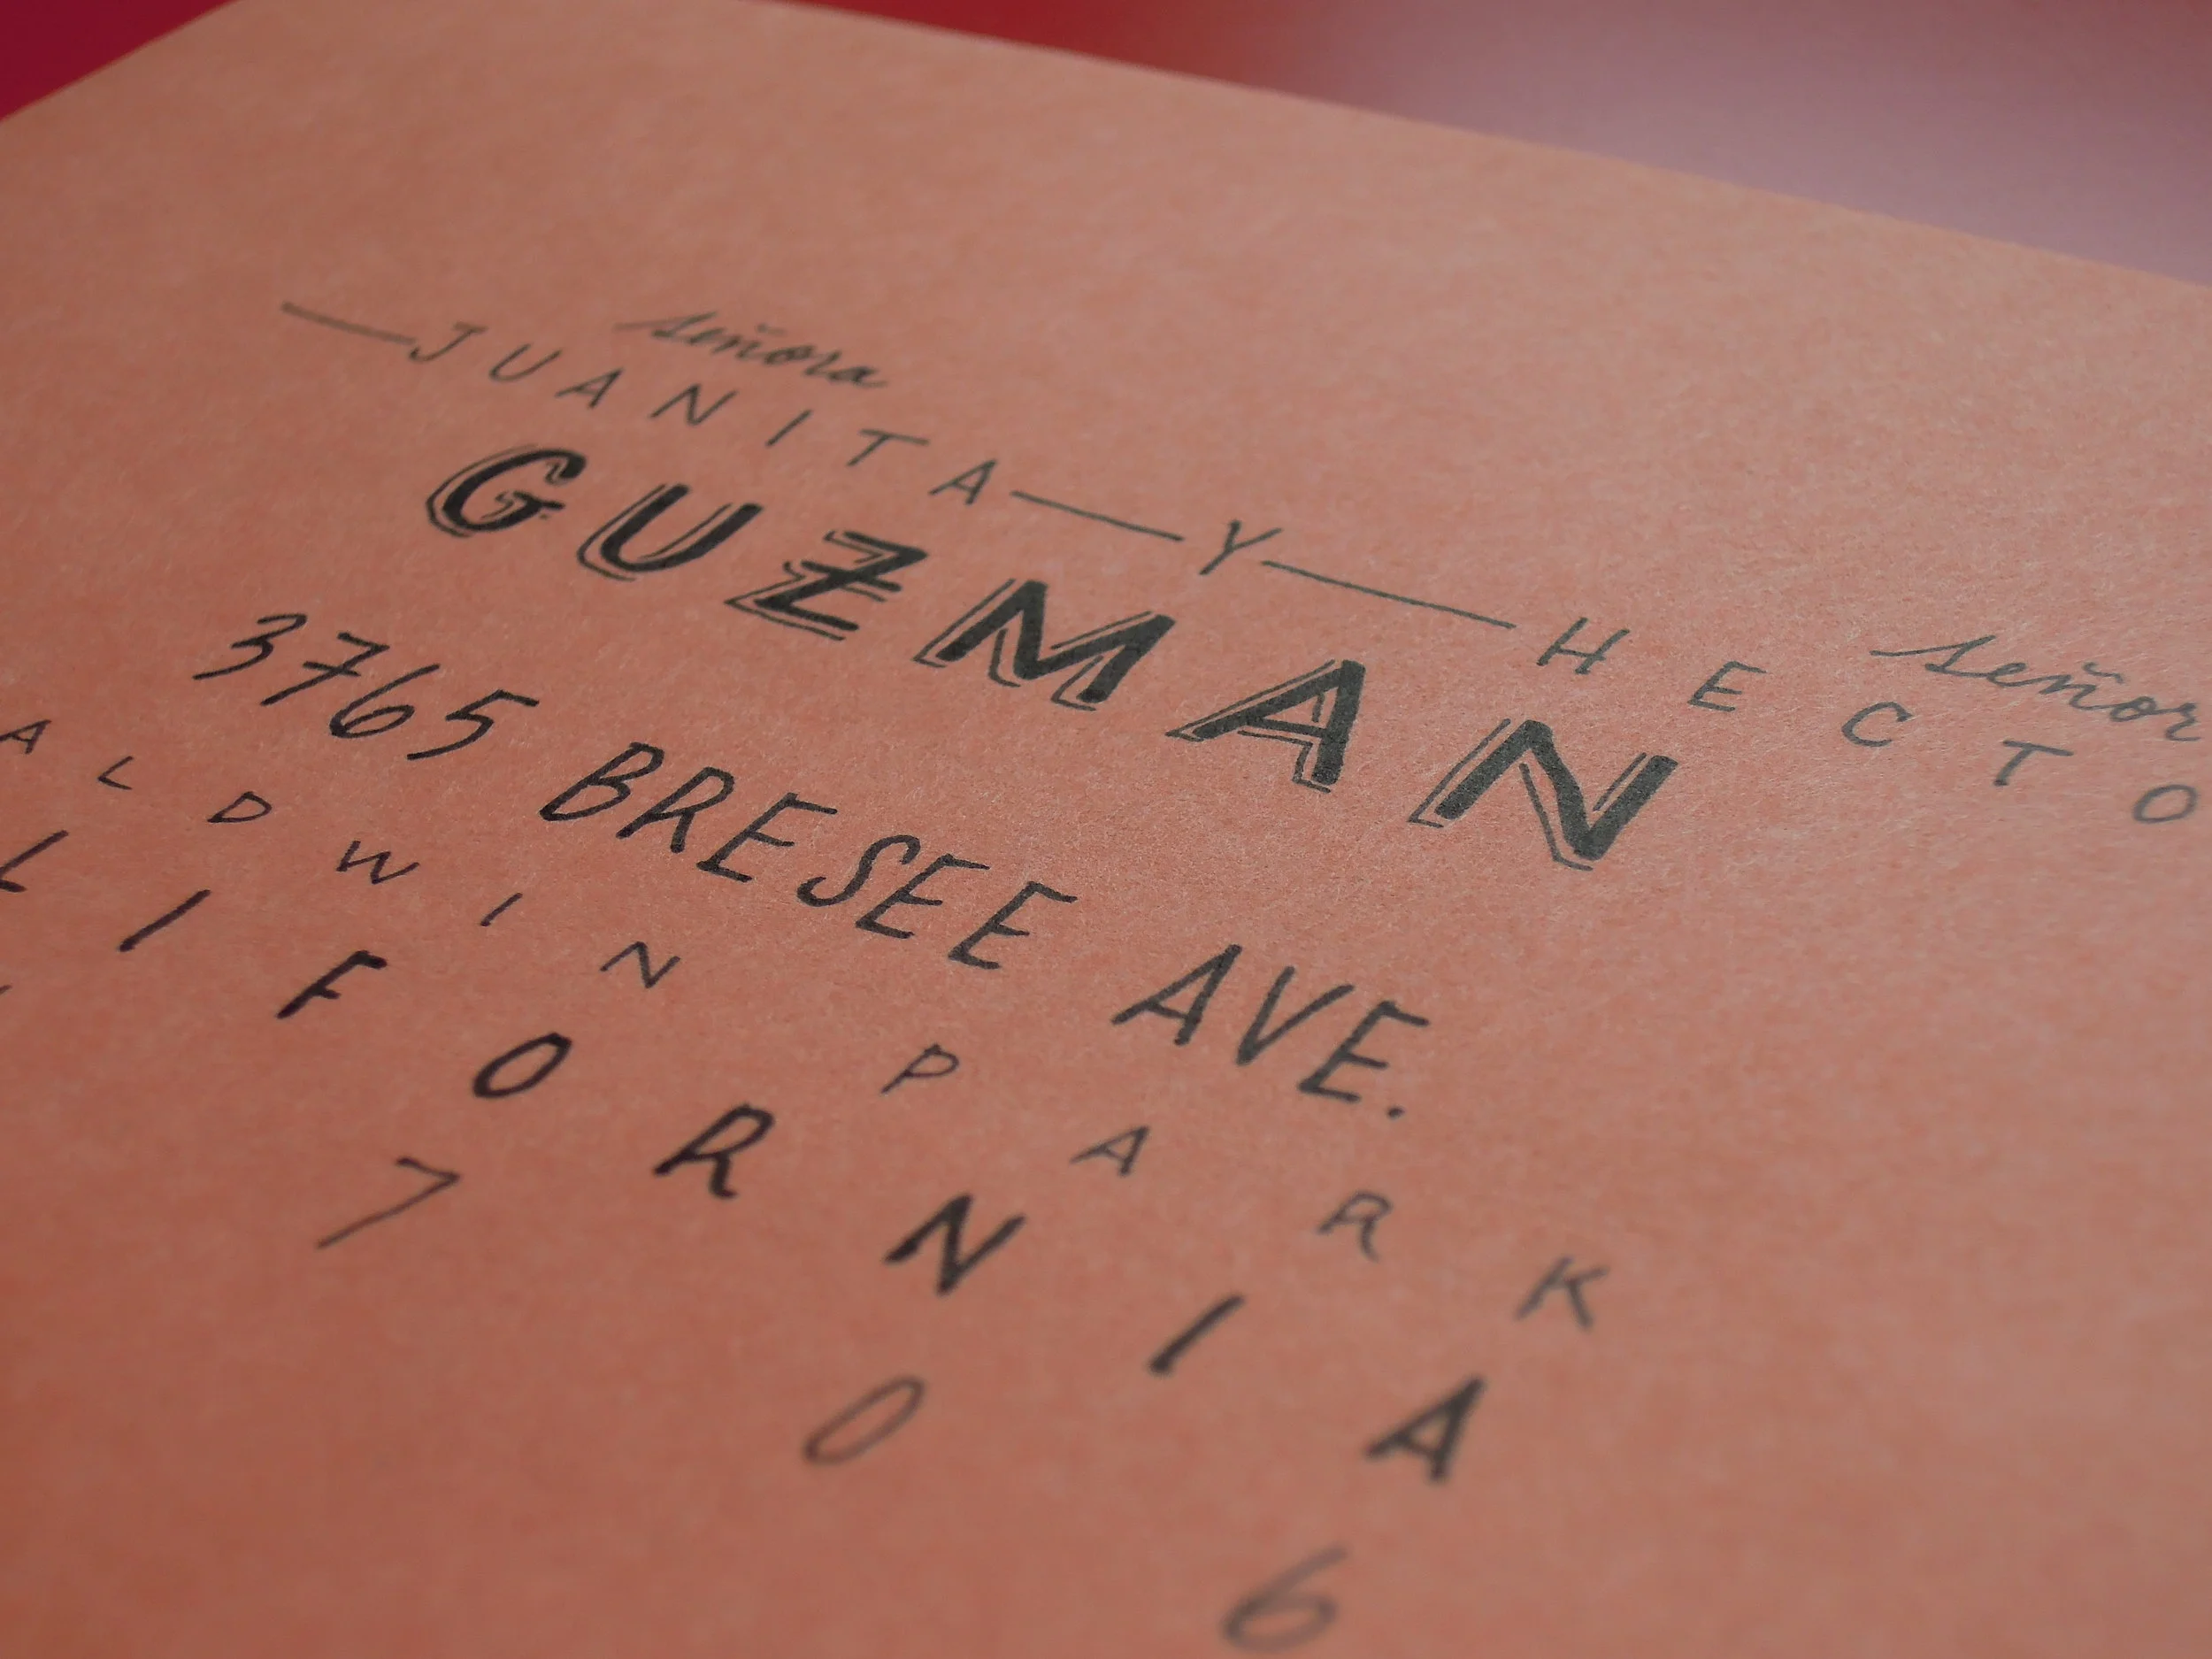 señora señor
—JUANITA—Y—HECTO
GUZMAN
3765 BRESEE AVE.
ALDWIN PARK
LIFORNIA
706